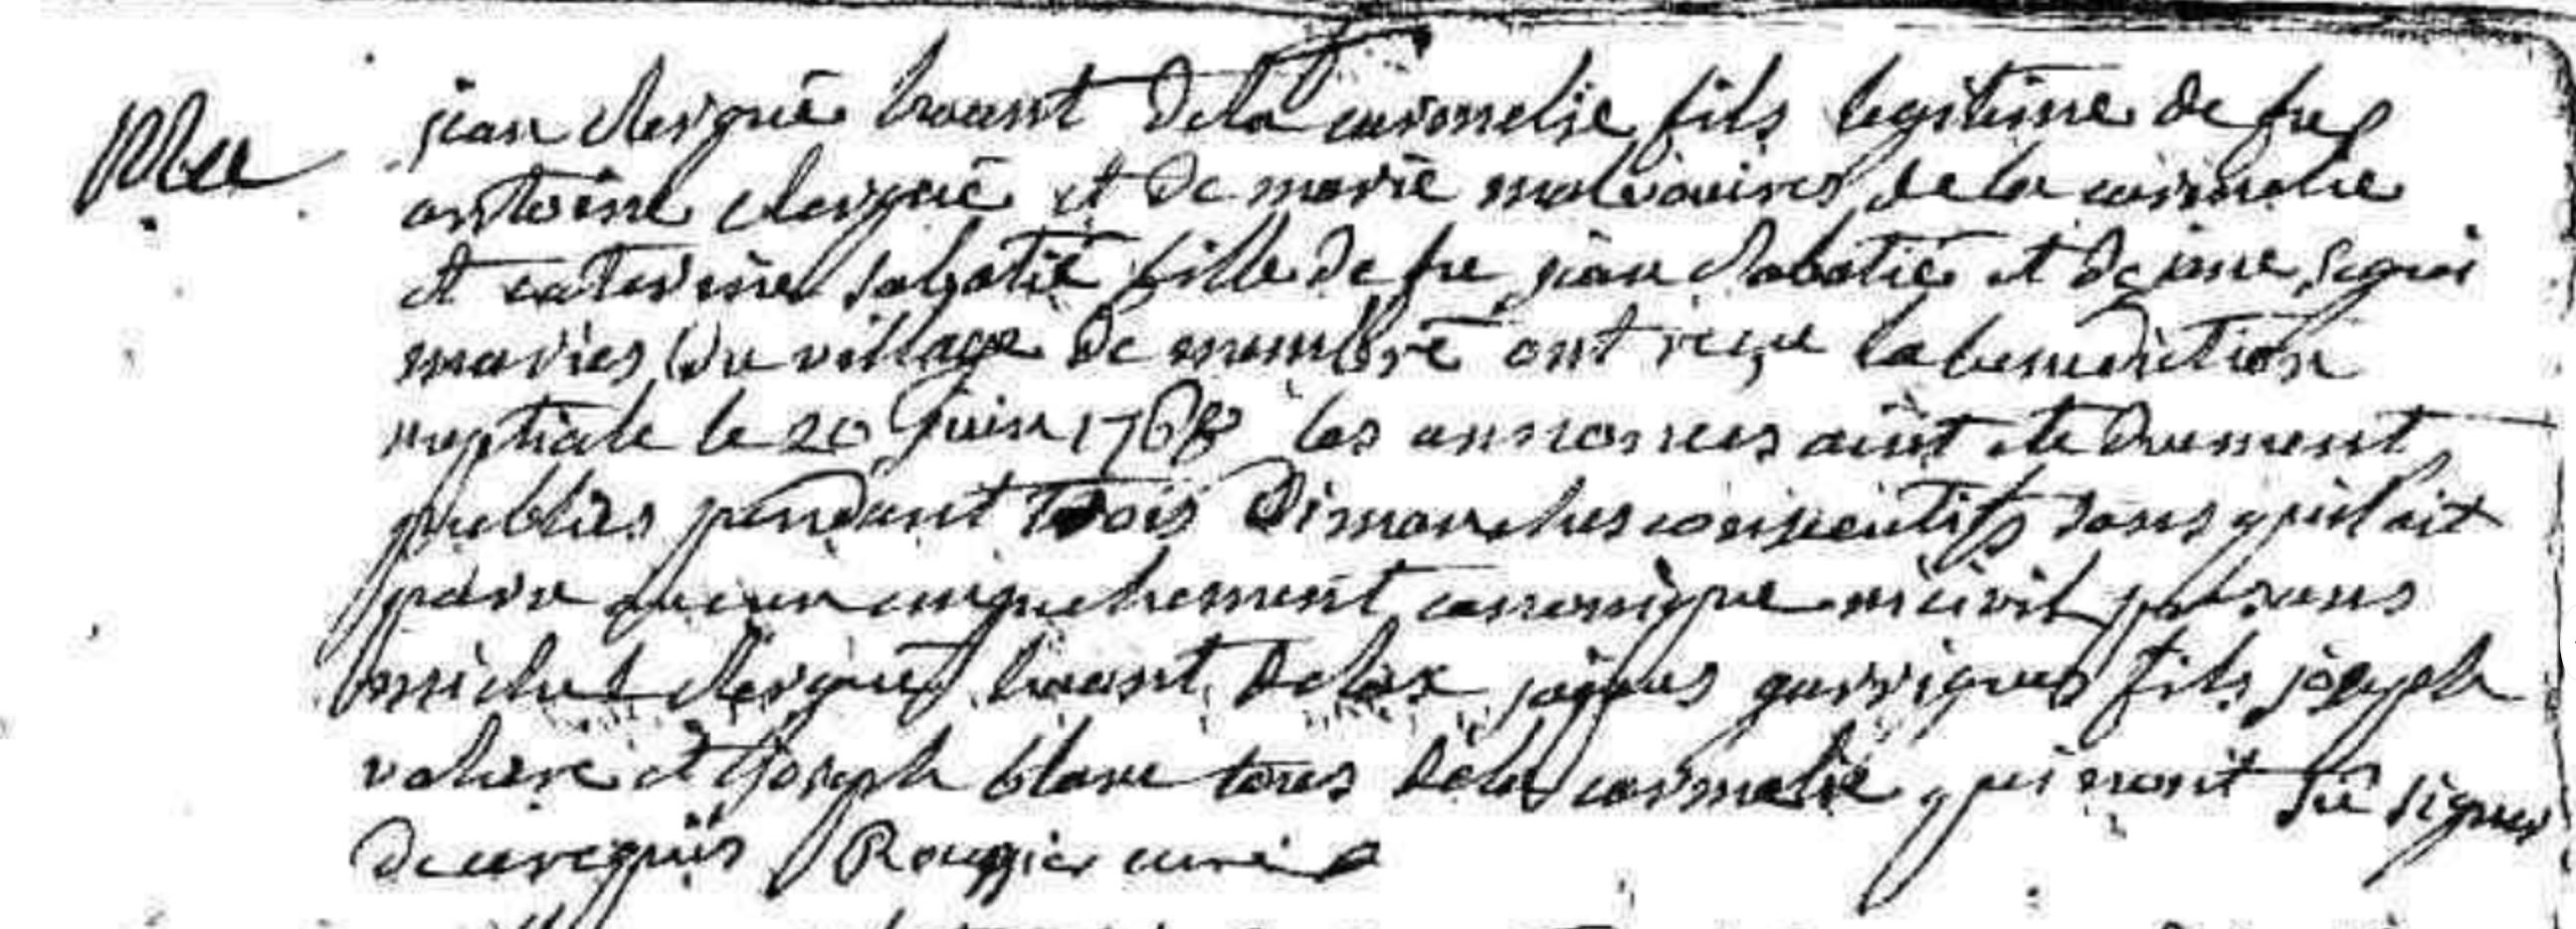 Mee
jean clergue brasst dela caromelie fils legitime de feu
antoine clergue et de marie malvaires de la carmelie
et caterine sabatié fille de feu jean sabatié et de jane
maries du village de membre ont reçue la benediction
nuptiale le 20 juin 1768 les annonces aiint ete duement
publiés pendant trois dimanches consecutifs sans quil ait
paru aucun empechement canonique ni civil presans
michel clergue jaques garrigues fils joseph
valiere et joseph blanc tous dela carmelie qui nont su signer
de ce requis Rouggier curé